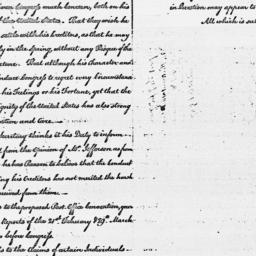 Congress much concern, both on his
of the United States. That they wish he
settle with his Creditors, as that he may
in the Spring, without any Risque of the
That although his Character and
Congress to regret any Circumstance
his Feelings or his Fortune, yet that the
Dignity of the United States has also strong
and Care.
Secretary thinks it his Duty to inform
from the Opinion of Mr. Jefferson as from
he has Reason to believe that the Conduct
his Creditors has not merited the harsh
received from them.
to the proposed Post Office Convention,
Reports of the 28th February & 29th March
before Congress.
to the Claims of certain Individuals
in Election may appear to
All which is